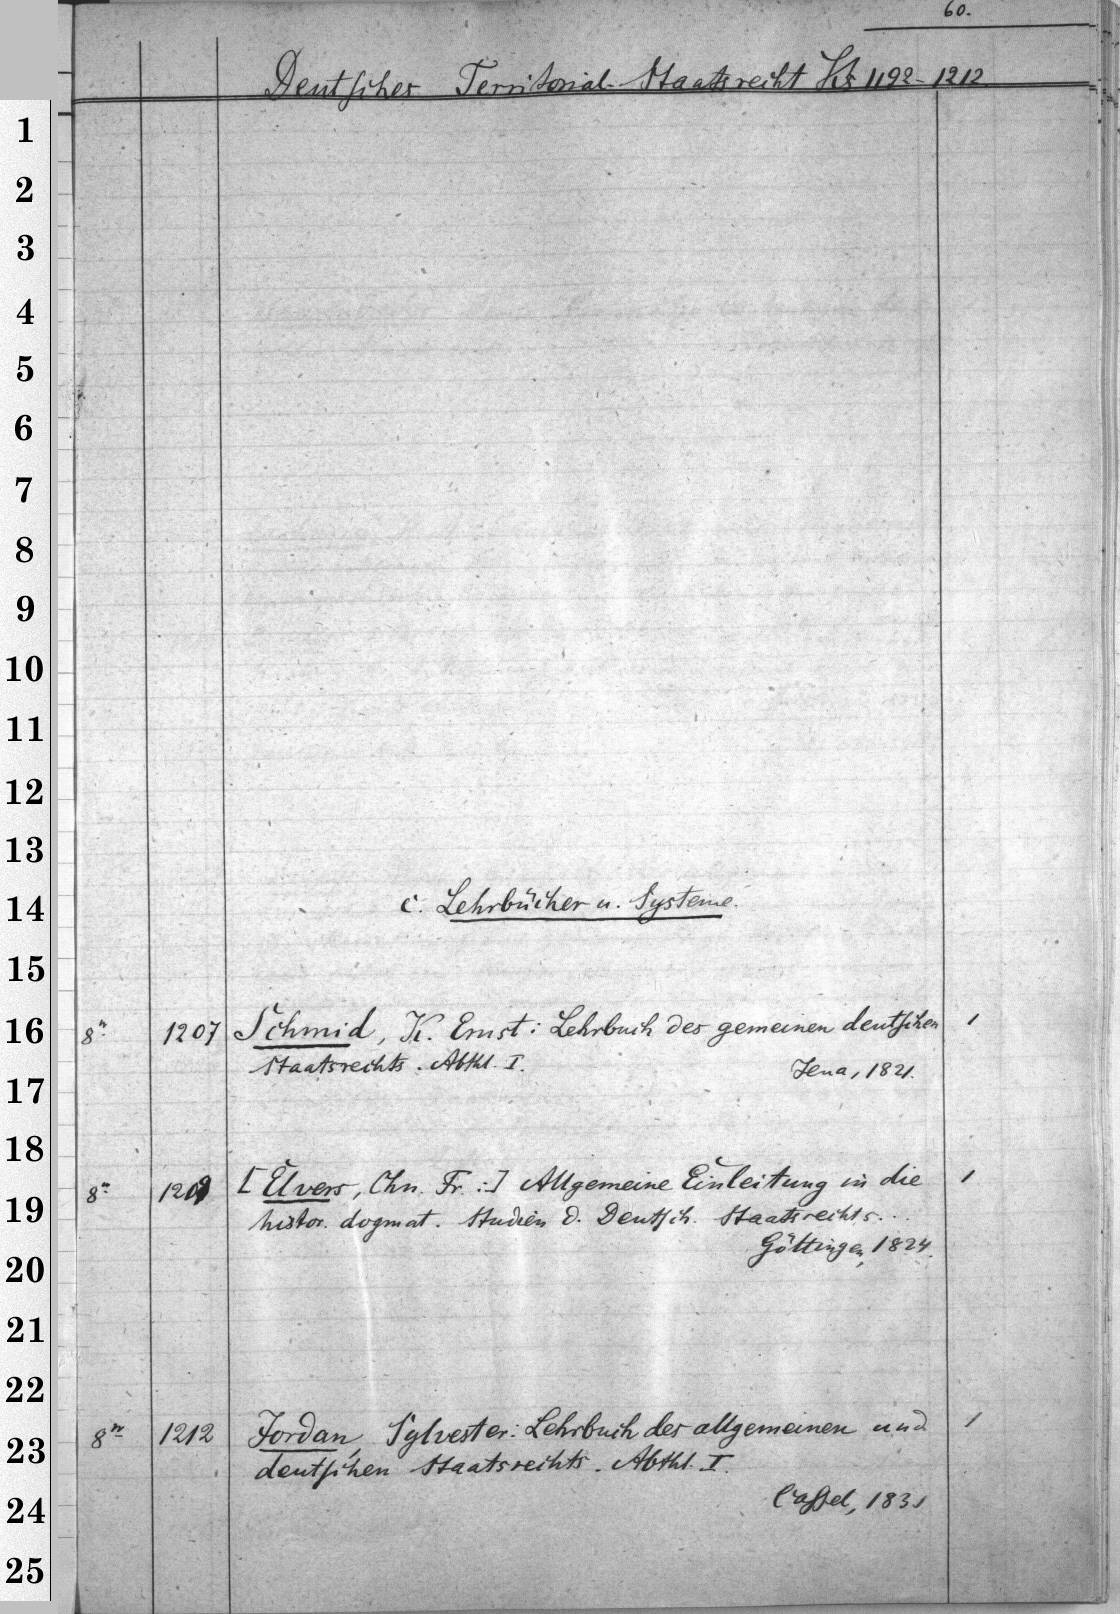 60.
Deutsches Territorial-Staatsrecht Ks 1192-1212.
1
2
3
4
5
6
7
8
9
10
11
12
13
c. Lehrbücher u. Systeme.
14
15
8° 1207 Schmid, K. Ernst: Lehrbuch des gemeinen deutschen 1
16
Staatsrechts. Abthl. I. Jena, 1821.
17
18
8° 1209 [Elvers, Chn. Fr.:] Allgemeine Einleitung in die 1
19
histor. dogmat. Studien d. Deutsch. Staatsrechts...
Göttingen, 1824.
20
21
22
8° 1212 Jordan, Sylvester: Lehrbuch des allgemeinen und 1
23
deutschen Staatsrechts. Abthl. I.
Cassel, 1831
24
25